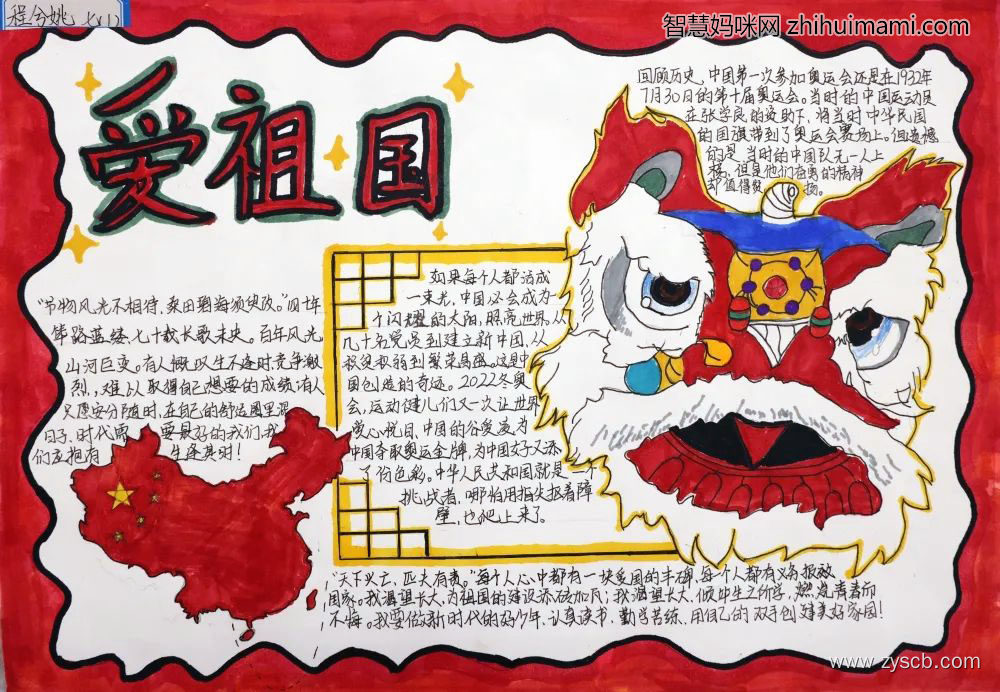 程兮姚 七(1)
智慧妈咪网 zhihuimami.com
爱祖国
回顾历史，中国第一次参加奥运会还是在1932年
7月30日的第十届奥运会。当时的中国运动员
在张学良的资助下，将当时中华民国
的国旗带到了奥运会赛场上。但遗憾
的是，当时的中国队无一人上
榜，但是他们奋勇的精神
却值得发扬。
"节物风光不相待，桑田碧海须臾改。"旧年
筚路蓝缕，七十载长歌未央。百年风光
山河巨变。有人慨叹生不逢时，竞争激
烈，难以取得自己想要的成绩；有人
只愿安分随时，在自己的舒适圈里混
日子，时代需要最好的我们，我
们正拥有生逢其时！
如果每个人都活成
一束光，中国必会成为一
个闪耀的太阳，照亮世界。从
几十名党员到建立新中国，从
积贫积弱到繁荣昌盛。这是中
国创造的奇迹。2022冬奥
会，运动健儿们又一次让世界
赏心悦目，中国的谷爱凌为
中国夺取奥运金牌，为中国女子又添
了份色彩。中华人民共和国就是一个
挑战者，哪怕用指尖抠着障
壁，也爬上来了。
"天下兴亡，匹夫有责。"每个人心中都有一块爱国的丰碑，每个人都有义务报效
国家。我渴望长大，为祖国的建设添砖加瓦；我渴望长大，倾毕生之所学，燃烧青春而
不悔。我要做新时代的好少年，认真读书，勤学苦练，用自己的双手创建美好家园！
www.zyscb.com